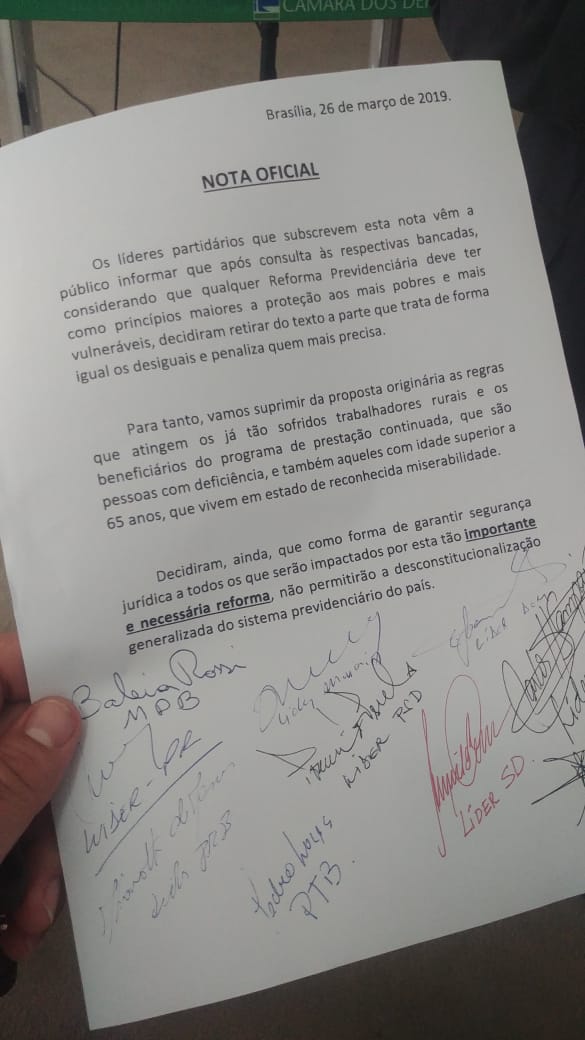 CÂMARA DOS DEP
Brasília, 26 de março de 2019.
NOTA OFICIAL
Os líderes partidários que subscrevem esta nota vêm a
público informar que após consulta às respectivas bancadas,
considerando que qualquer Reforma Previdenciária deve ter
como princípios maiores a proteção aos mais pobres e mais
vulneráveis, decidiram retirar do texto a parte que trata de forma
igual os desiguais e penaliza quem mais precisa.
Para tanto, vamos suprimir da proposta originária as regras
que atingem os já tão sofridos trabalhadores rurais e os
beneficiários do programa de prestação continuada, que são
pessoas com deficiência, e também aqueles com idade superior a
65 anos, que vivem em estado de reconhecida miserabilidade.
Decidiram, ainda, que como forma de garantir segurança
jurídica a todos os que serão impactados por esta tão importante
e necessária reforma, não permitirão a desconstitucionalização
generalizada do sistema previdenciário do país.
Baleia Rossi
MDB
LÍDER DEM
LÍDER PSD
LÍDER - PR
LÍDER SD.
Líder
PRB
Pedro Lucas
PTB.